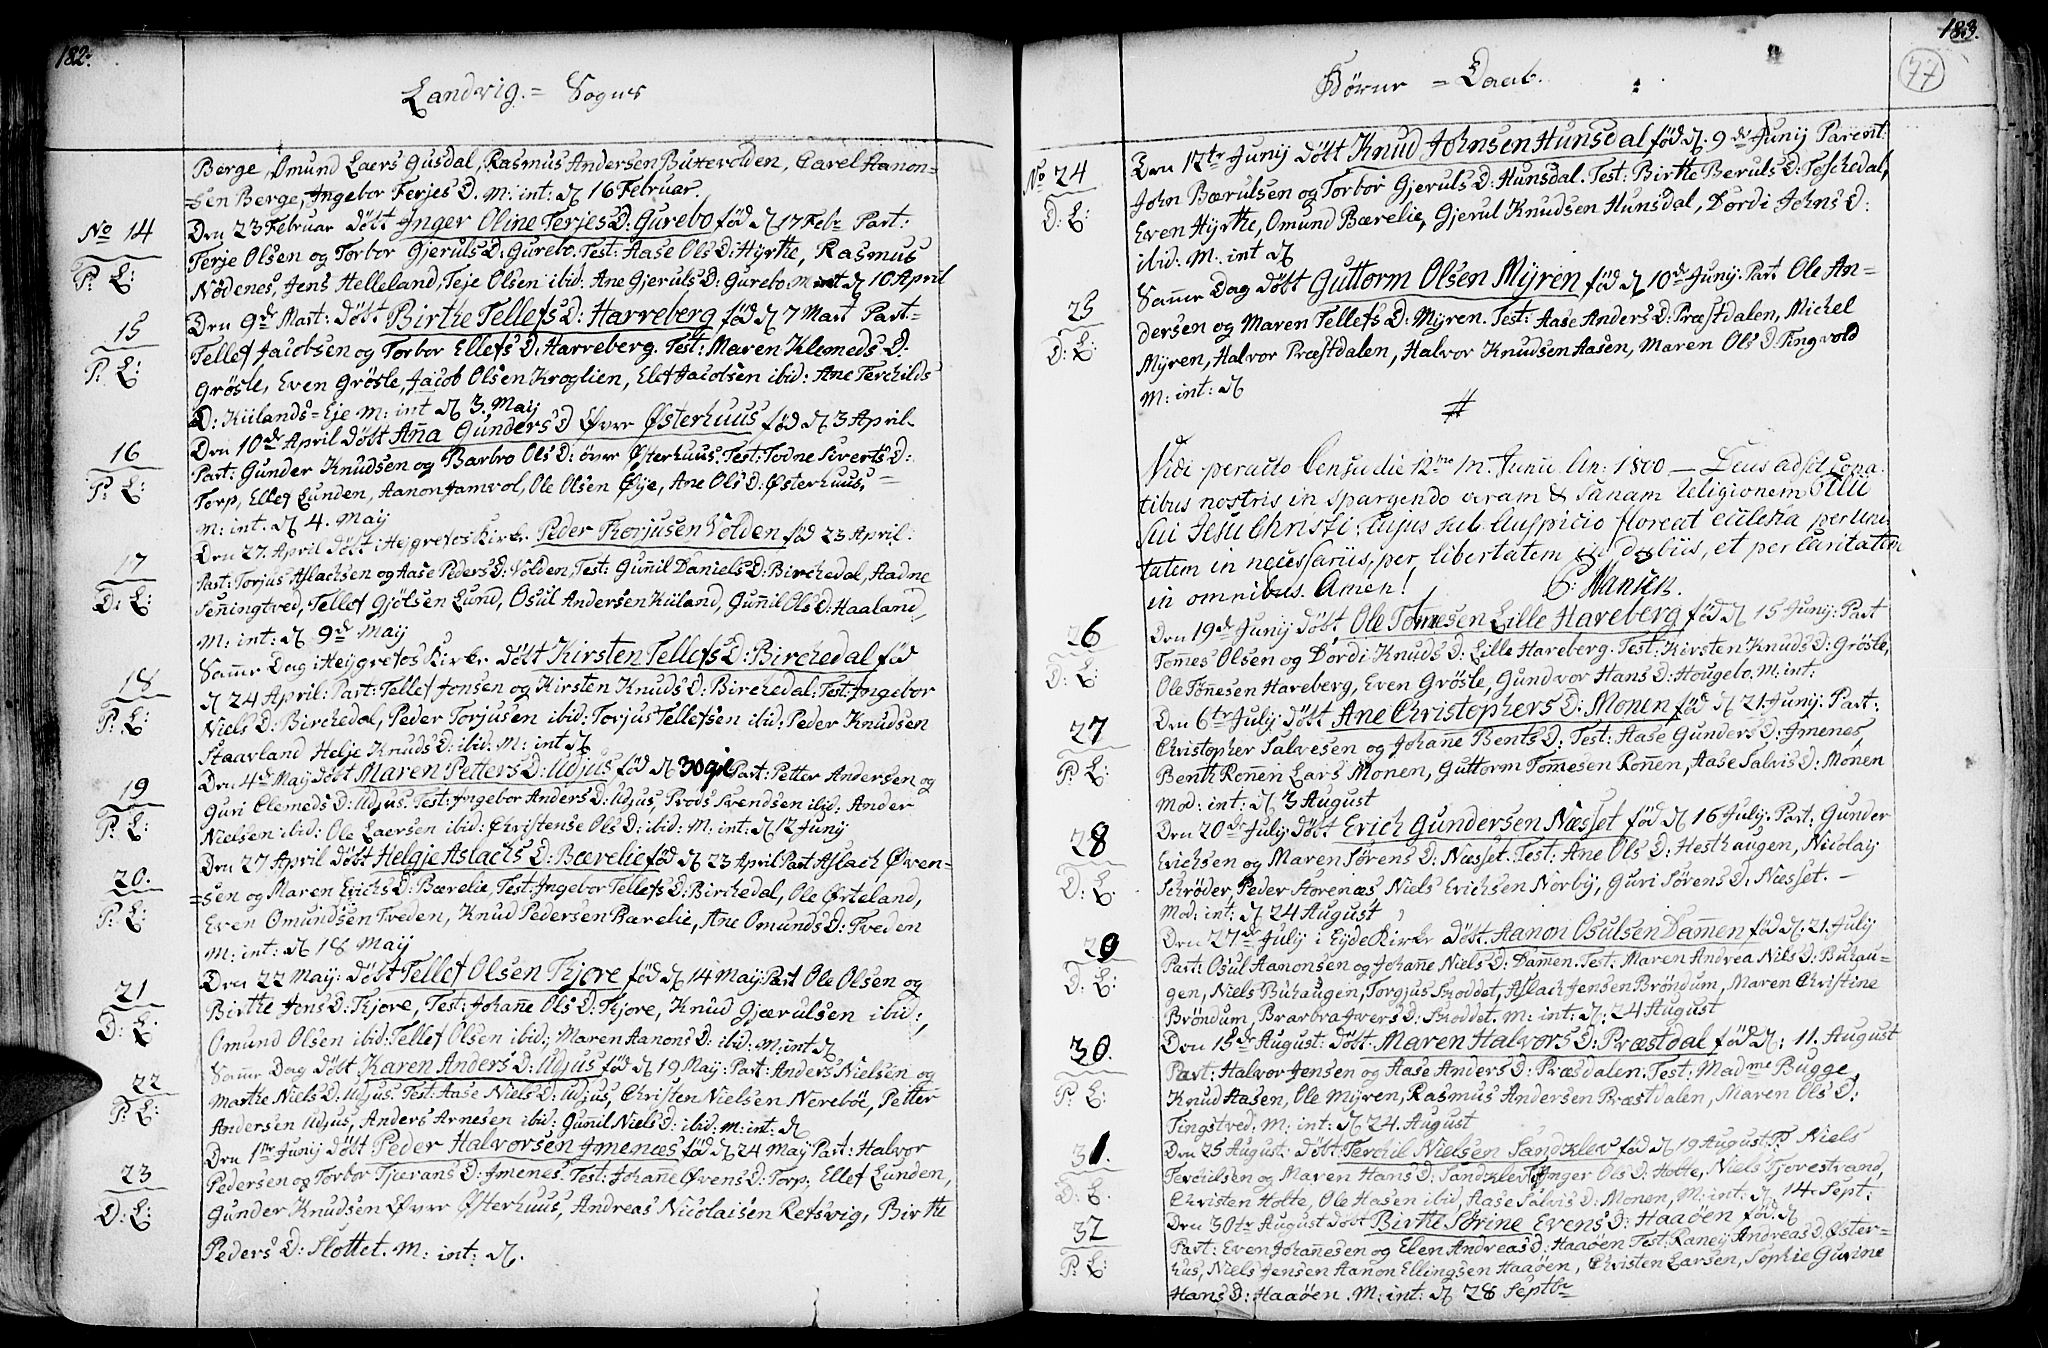 182.
Landvig = Sogns
Berge, Omund Laers Gusdal, Rasmus Andersen Buxevolden, Carel Aanon=
sen Berge, Ingebor Terjes D. M: int: d 16 Februar.
No 14
Den 23 Februar döbt Inger Oline Terjes D: Gurebo föd d 17 Febr Part:
P: L:
Terje Olsen og Torbor Gjeruls D: Gurebo. Test: Aase Ols D: Hyrthe, Rasmus
Nödenes, Jens Helleland, Teje Olsen ibid. Ane Gjeruls D: Gurebo. M int d 10 April
15
Den 9de Mart: döbt Birthe Tellefs D: Harreberg föd d 7 Mart Part:
P: L:
Tellef Jacobsen og Torbor Ellefs D: Harreberg. Test: Maren Klemeds D:
Grösle, Even Grösle, Jacob Olsen Kroglien, Elef Jacobsen ibid: Ane Terchilds
D: Kiilands = Eje M: int d 3. Maij
16
Den 10de April döbt Anna Gunders D Øvre Østerhuus föd d 3 April
P: L:
Part: Gunder Knudsen og Barbro Ols D: över Østerhuus. Test: Todne Siverts D:
Torp, Ellef Lunden, Aanon Jamvol, Ole Olsen Øye, Ane Ols D: Østerhuus.
M: int. d 4. Maij
17
Den 27. April döbt i Hejgrefos Kirke Peder Torjusen Volden föd 23 April:
D: L:
Part: Torjus Aslachsen og Aase Peders D: Volden, Test: Gunnil Daniels D: Birchedal, Aadne
Senningtved, Tellef Gjölsen Lund, Osul Andersen Kiiland, Gunnil Ols D: Haaland,
M: int: d 9de Maij
18
Samme Dag i Heygrefos Kirke döbt Kirsten Tellefs D: Birchedal föd
P: L:
d 24 April: Part: Tellef Jonsen og Kirsten Knuds D: Birchedal: Test: Ingebor
Niels D: Birchedal, Peder Torjusen ibid: Torjus Tellefsen ibid: Peder Knudsen
Staavland Helje Knuds D: ibid: M: int d
19
Den 4de Maij döbt Maren Petters D: Udjus föd d 30 Part: Petter Andersen og
P: L:
Guri Clemeds D: Udjus. Test: Ingebor Anders D: Udjus, Prods Svendsen ibid: Ander
Nielsen ibid: Ole Laersen ibid: Christense Ols D: ibid: M: int: d 12 Junij
20.
Den 27 April döbt Helgje Aslachs D: Bærelie föd d 23 April Part Aslach Øven=
P: L:
=sen og Maren Erichs D: Bærelie, Test: Ingebor Tellefs D: Birchedal, Ole Örteland,
Even Omundsen Tveden, Knud Pedersen Bærelie, Ane Omunds D: Tveden
M: int: d 18 Maij
21
Den 22 Maij: döbt Tellef Olsen Tjore föd d 14 Maij: Part Ole Olsen og
D: L:
Birthe Jens D: Tjore, Test: Johanne Ols D: Tjore, Knud Gjærulsen ibid:
Omund Olsen ibid: Tellef Olsen ibid; Maren Aanons D: ibid: M: int d
22
Samme Dag döbt Karen Anders D: Udjus föd d 19 Maij: Part: Anders Nielsen og
P: L:
Marthe Niels D: Udjus. Test: Aase Niels D: Udjus, Christen Nielsen Nereböe, Petter
Andersen Udjus, Anders Arnesen ibid: Gunnil Niels D: ibid: M: int: d
23
Den 1ste Junij döbt Peder Halvorsen Jmenæs föd d 24 Maij Part: Halvor
D: L:
Pedersen og Torbor Tjerans D: Jmenes. Test: Johanne Øvens D: Torp, Ellef Lunden,
Gunder Knudsen Øvre Østerhuus, Andreas Nicolaisen Retsvig, Birthe
Peders D: Slottet. M: int: d.
183.
77
Börne = Daab.
No 24
Den 12te Junij döbt Knud Johnsen Hunsdal föd d. 9de Junij Parent:
D: L:
John Bærulsen og Torbor Gjeruls D: Hunsdal. Test: Birthe Beruls D: Toschedal,
Even Hyrthe, Omund Bærelie, Gjerul Knudsen Hunsdal, Dordi Johns D:
ibid: M. int d
25
Samme Dag döbt Guttorm Olsen Myren föd d 10de Junij: Part Ole An=
D: L:
dersen og Maren Tellefs D: Myren. Test: Aase Anders D: Præstdalen, Michel
Myren, Halvor Præstdalen, Halvor Knudsen Aasen, Maren Ols D: Tingvold
M: int: d
#
Vidi peracto Censu die 12mo M. Junii An: 1800 — Deus adsit Cona
tibus nostris in spargendo veram & sanam religionem filii
sui Jesu Christi: Cujus sub Auspicio floreat ecclesia per uni
tatem in necessariis, per libertatem in dubiis, et per Caritatem
in omnibus. Amen! C: Hansen.
26
Den 19de Junij döbt Ole Tommesen Lille Hareberg föd d 15 Junij: Part
D: L:
Tommes Olsen og Dordi Knuds D: Lille Hareberg. Test: Kirsten Knuds D: Grösle,
Ole Tommesen Hareberg, Even Grösle, Gundvor Hans D: Hougebo. M: int:
27
Den 6te Julij döbt Ane Christophers D: Monen föd d 21. Junij: Part:
P: L:
Christopher Salvesen og Johanne Bents D: Test: Aase Gunders D: Jmenes,
Benth Ronnen Lars Monen, Guttorm Tommesen Ronnen, Aase Salvis D: Monen
Mod: int: d 3 August
28
Den 20de Julij: döbt Erich Gundersen Næsset föd d 16 Julij: Part: Gunder
D: L.
Erichsen og Maren Sörens D: Næsset. Test: Ane Ols D: Hesthaugen, Nicolaij
Schröder, Peder Storenæs Niels Erichsen Norby, Guri Sörens D: Næsset. —
Mod: int: d 24 August
29
Den 27de Julij i Eyde Kirke döbt Aanon Osulsen Dammen föd d. 21 Julij
D: L:
Part: Osul Aanonsen og Johanne Niels D: Dammen. Test: Maren Andrea Nils D: Buhau=
gen, Niels Buhaugen, Torgjus Skoddet, Aslach Jensen Bröndum, Maren Christine
Bröndum, Brarbra Ivers D: Skoddet. M: int: d: 24 August
30.
Den 15de August: döbt Maren Halvors D: Præstdal föd d: 11. August
P: L:
Part: Halvor Jensen og Aase Anders D: Præsdalen. Test: Madme Bugge,
Knud Aasen, Ole Myren, Rasmus Andersen Præstdalen, Maren Ols D:
Tingstved. M: int: d 24 August
31.
Den 25 August: döbt: Terchil Nielsen Sandklev föd d 19 August: P: Niels
D: L.
Terchilsen og Maren Hans D: Sandklev T: Jnger Ols D: Holte, Niels Tjorestrand,
Christen Holte, Ole Hasen ibid, Aase Salvis D: Monen, M: int: d. 14 Sept:
32
Den 30te August döbt Birthe Sörine Evens D: Haaöen föd. d
P: L:
Part: Even Johannesen og Elen Andreas D: Haaöen Test: Raneij Andreas D: Øster=
hus, Niels Jensen Aanon Ellingsen Haaöen, Christen Larsen, Sophie Gurine
Hans D: Haaöen. M: int: d 28 Septbr